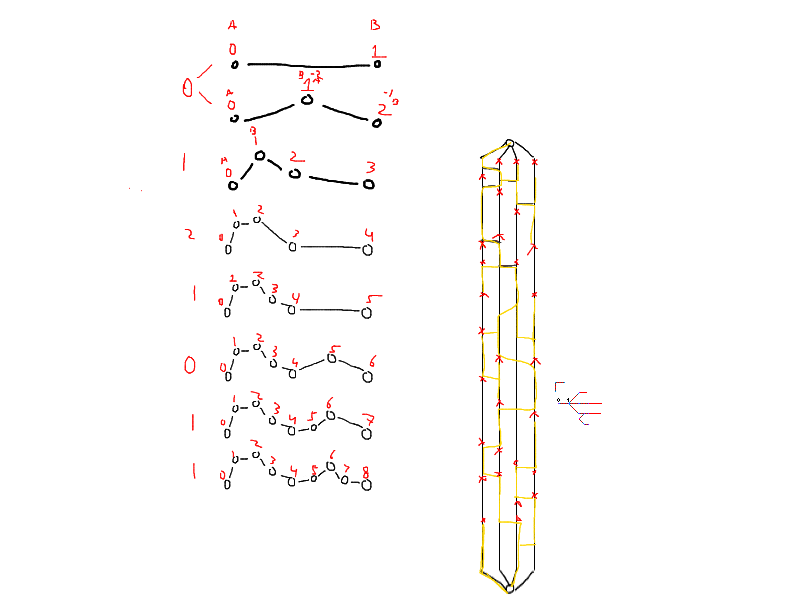 A B
0 1
0
A 0 B 1 -2 2 -1
1 A 0 B 1 2 3
2 0 1 2 3 4
1 0 1 2 3 4 5
0 0 1 2 3 4 5 6
1 0 1 2 3 4 5 6 7
1 0 1 2 3 4 5 6 7 8
0 1